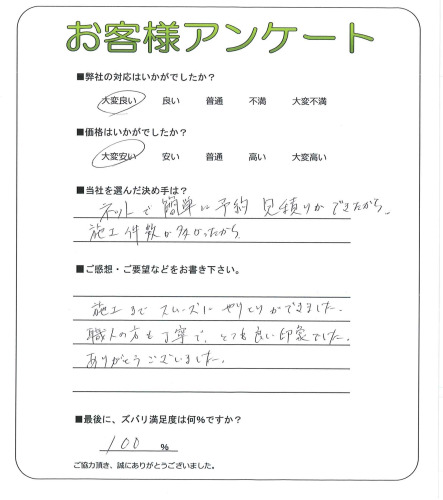 お客様アンケート
■弊社の対応はいかがでしたか?
大変良い 良い 普通 不満 大変不満
■価格はいかがでしたか?
大変安い 安い 普通 高い 大変高い
■当社を選んだ決め手は?
ネットで簡単に予約 見積りができたから。
施工件数が多かったから
■ご感想・ご要望などをお書き下さい。
施工までスムーズにやりとりができました。
職人の方も丁寧で、とても良い印象でした。
ありがとうございました。
■最後に、ズバリ満足度は何%ですか?
100 %
ご協力頂き、誠にありがとうございました。